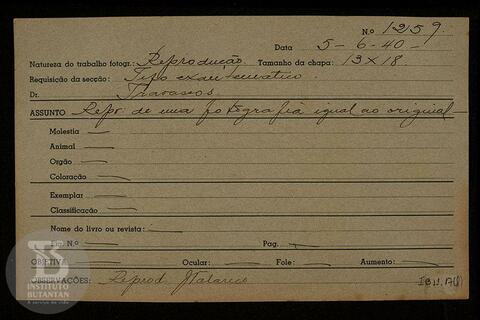 N.o 1259.
Data 5-6-40-
Natureza do trabalho fotogr.: Reprodução Tamanho da chapa: 13X18.
Requisição da secção: Tifo exantematico
Dr. Travassos
ASSUNTO Repr. de uma fotografia igual ao original
Molestia
Animal
Orgão
Coloração
Exemplar
Classificação
Nome do livro ou revista:
Fig. N.o Pag.
OBJETIVA Ocular: Fole: Aumento:
OBSERVAÇÕES: Reprod J Talarico
INSTITUTO
BUTANTAN
A serviço da vida